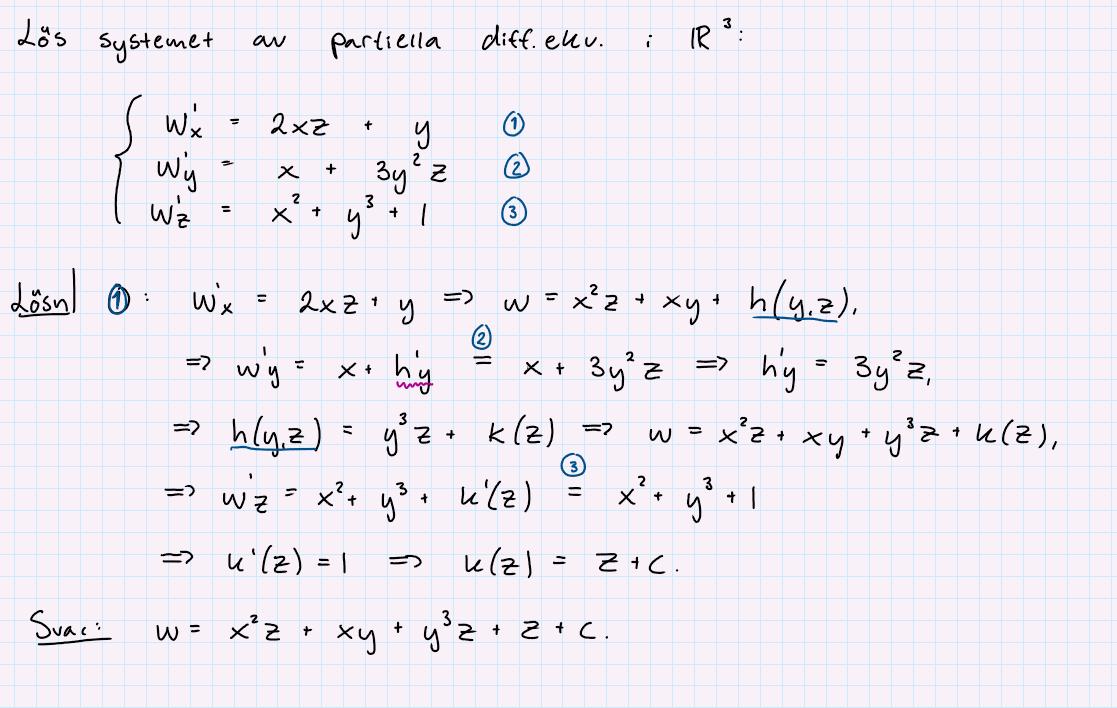 Lös systemet av partiella diff.ekv. i ℝ³:
w'x = 2xz + y ①
w'y = x + 3y²z ②
w'z = x² + y³ + 1 ③
Lösn ①: w'x = 2xz + y => w = x²z + xy + h(y,z),
=> w'y = x + h'y =② x + 3y²z => h'y = 3y²z,
=> h(y,z) = y³z + k(z) => w = x²z + xy + y³z + k(z),
=> w'z = x² + y³ + k'(z) =③ x² + y³ + 1
=> k'(z) = 1 => k(z) = z + C.
Svar: w = x²z + xy + y³z + z + C.